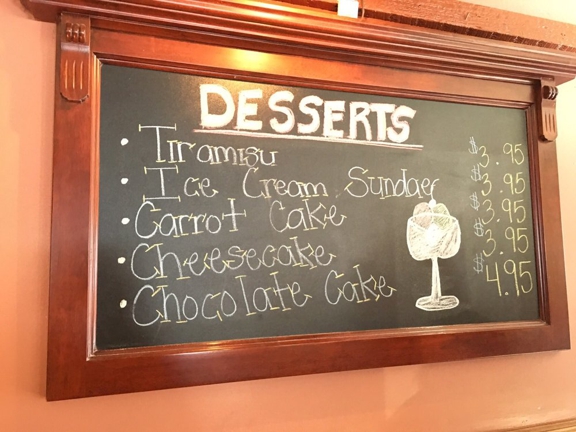 DESSERTS
• Tiramisu $3.95
• Ice Cream Sundae $3.95
• Carrot Cake $3.95
• Cheesecake $3.95
• Chocolate Cake $4.95